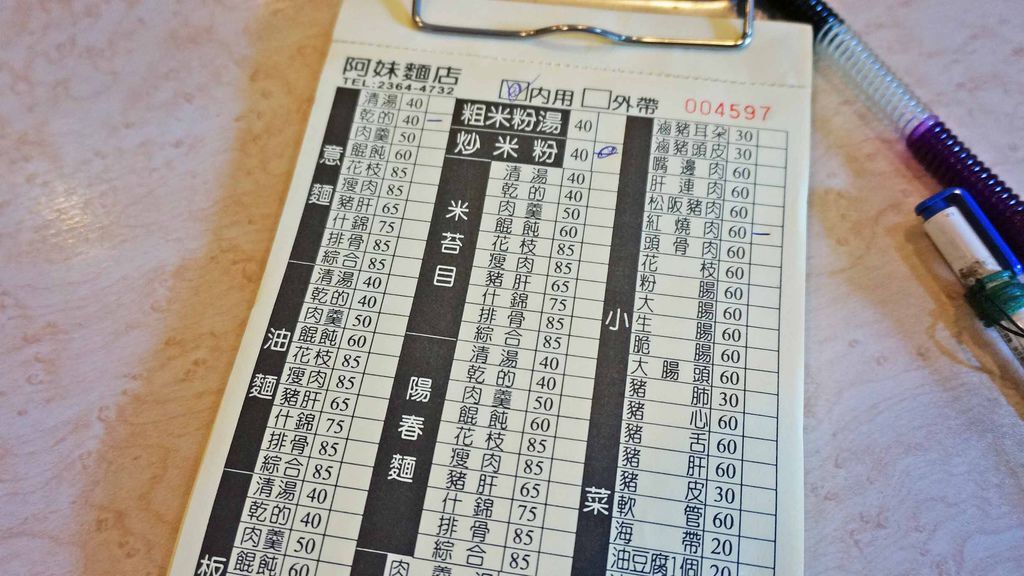 阿妹麵店
TEL:2364-4732
內用 外帶 004597
意麵
清湯 40
乾的 40
肉羹 50
餛飩 60
花枝 85
瘦肉 85
豬肝 65
什錦 75
排骨 85
綜合 85
油麵
清湯 40
乾的 40
肉羹 50
餛飩 60
花枝 85
瘦肉 85
豬肝 65
什錦 75
排骨 85
綜合 85
板
清湯 40
乾的 40
肉羹 50
餛飩 60
粗米粉湯 40
炒米粉 40
米苔目
清湯 40
乾的 40
肉羹 50
餛飩 60
花枝 85
瘦肉 85
豬肝 65
什錦 75
排骨 85
綜合 85
陽春麵
清湯 40
乾的 40
肉羹 50
餛飩 60
花枝 85
瘦肉 85
豬肝 65
什錦 75
排骨 85
綜合 85
肉
小菜
滷豬耳朵 30
滷豬頭皮 30
嘴邊肉 60
肝連肉 60
松阪豬肉 60
紅燒肉 60
頭骨肉 60
花枝 60
粉腸 60
大腸 60
生腸 60
脆腸 60
大腸頭 60
豬肺 30
豬心 60
豬舌 60
豬肝 60
豬皮 30
軟管 60
海帶 20
油豆腐1個 20